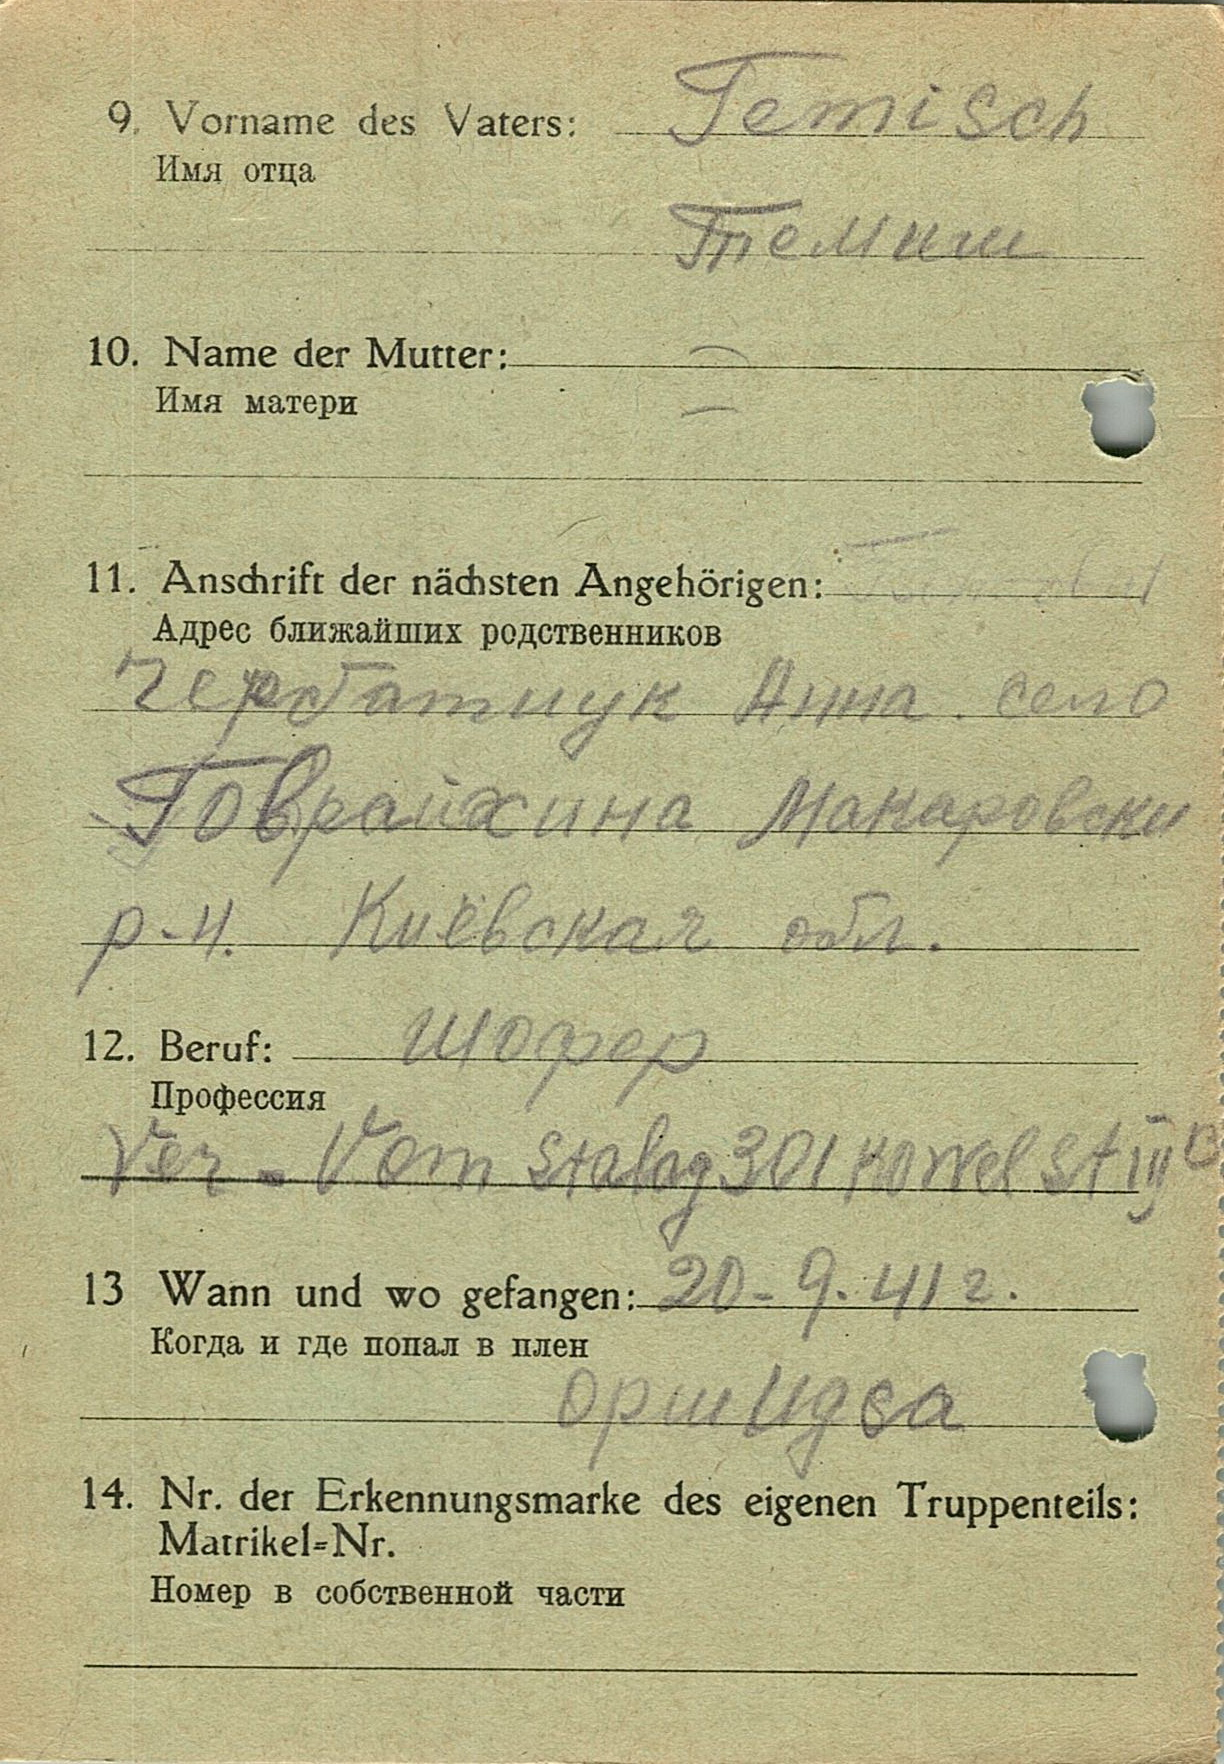 9. Vorname des Vaters: Temisch
Имя отца
Темиш
10. Name der Mutter: —
Имя матери
—
11. Anschrift der nächsten Angehörigen:
Адрес ближайших родственников
Анна. село
Макаровски
р-н. Киевская обл.
12. Beruf: шофер
Профессия
Ver - Vom Stalag 301 Kowel St III C
13 Wann und wo gefangen: 20-9.41 г.
Когда и где попал в плен
14. Nr. der Erkennungsmarke des eigenen Truppenteils:
Matrikel=Nr.
Номер в собственной части